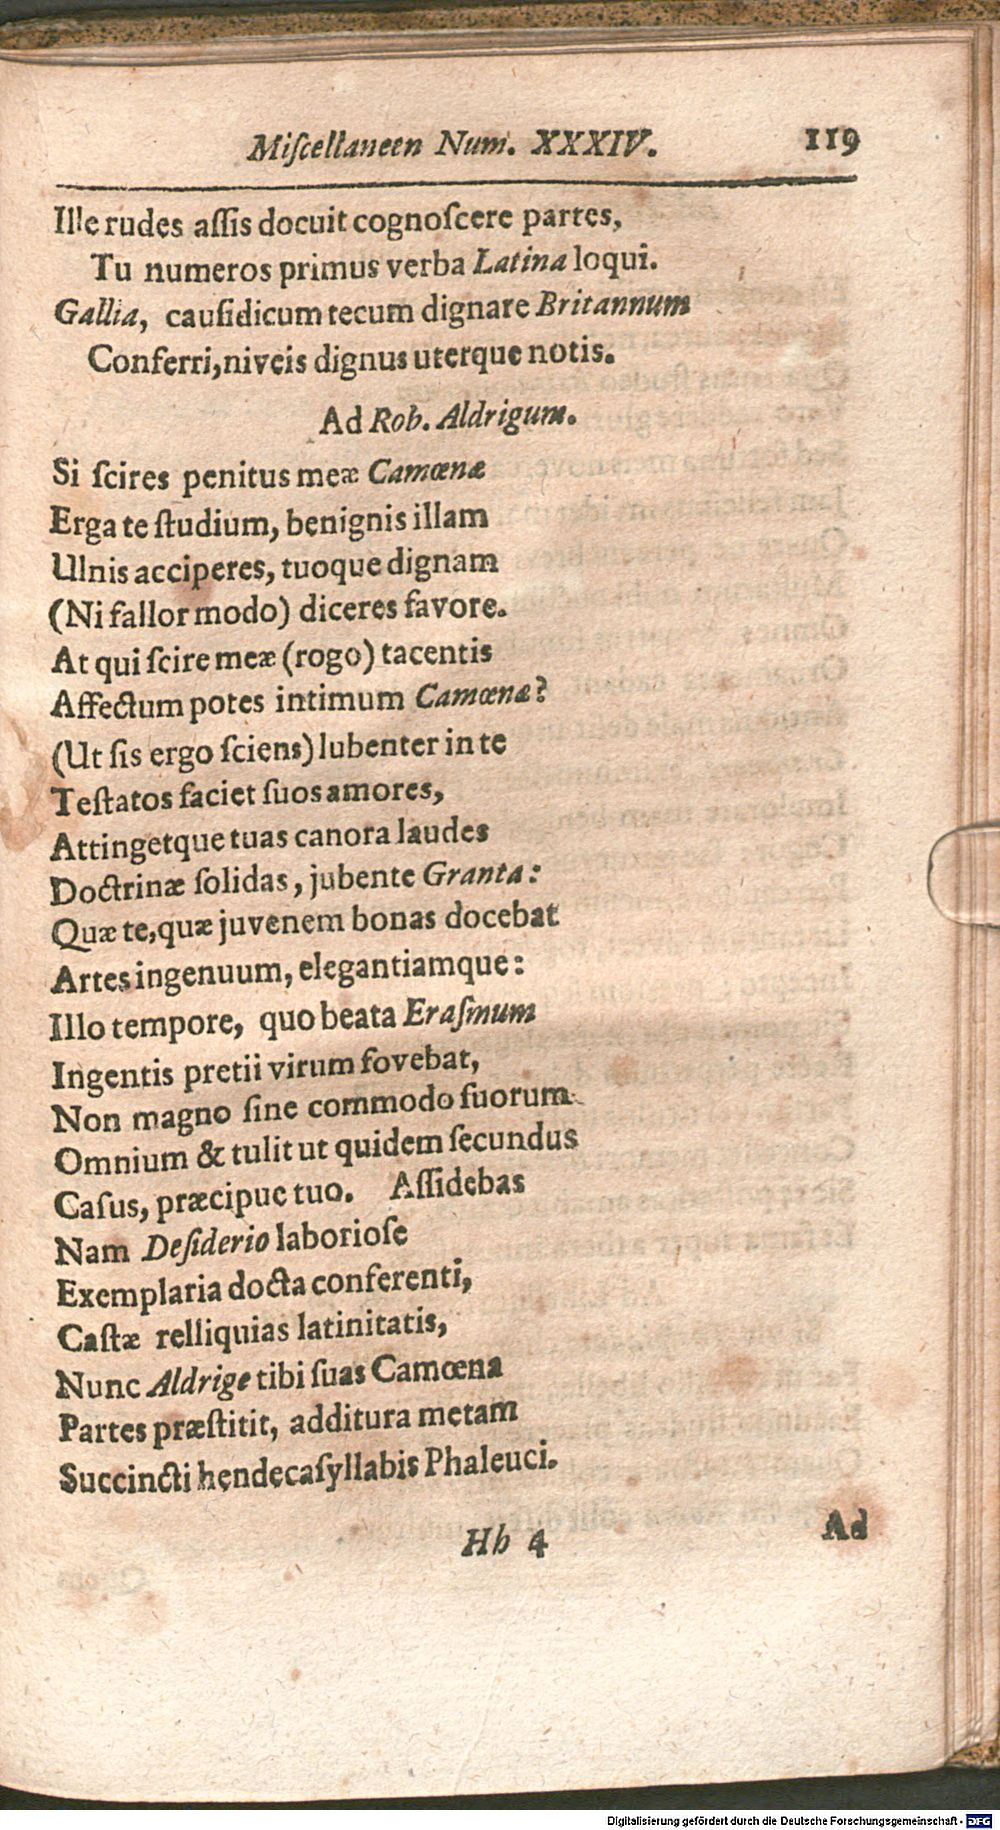 Miſcellaneen Num. XXXIV. 119
Ille rudes aſſis docuit cognoſcere partes,
Tu numeros primus verba Latina loqui.
Gallia, cauſidicum tecum dignare Britannum
Conferri, niveis dignus uterque notis.
Ad Rob. Aldrigum.
Si ſcires penitus meæ Camœnæ
Erga te ſtudium, benignis illam
Ulnis acciperes, tuoque dignam
(Ni fallor modo) diceres favore.
At qui ſcire meæ (rogo) tacentis
Affectum potes intimum Camœnæ?
(Ut ſis ergo ſciens) lubenter in te
Teſtatos faciet ſuos amores,
Attingetque tuas canora laudes
Doctrinæ ſolidas, jubente Granta:
Quæ te, quæ juvenem bonas docebat
Artes ingenuum, elegantiamque:
Illo tempore, quo beata Eraſmum
Ingentis pretii virum fovebat,
Non magno ſine commodo ſuorum
Omnium & tulit ut quidem ſecundus
Caſus, præcipue tuo. Aſſidebas
Nam Deſiderio laborioſe
Exemplaria docta conferenti,
Caſtæ relliquias latinitatis,
Nunc Aldrige tibi ſuas Camœna
Partes præſtitit, additura metam
Succincti hendecaſyllabis Phaleuci.
Hh 4 Ad
Digitalisierung gefördert durch die Deutsche Forschungsgemeinschaft - DFG